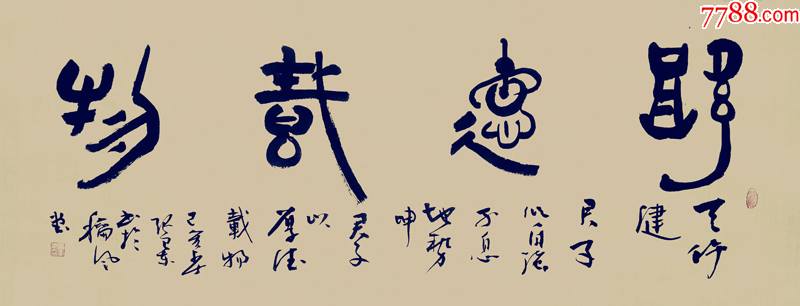 7788.com
厚德載物
天行
健
君子
以自強
不息
地勢
坤
君子
以
厚德
載物
己亥年
書於
堂